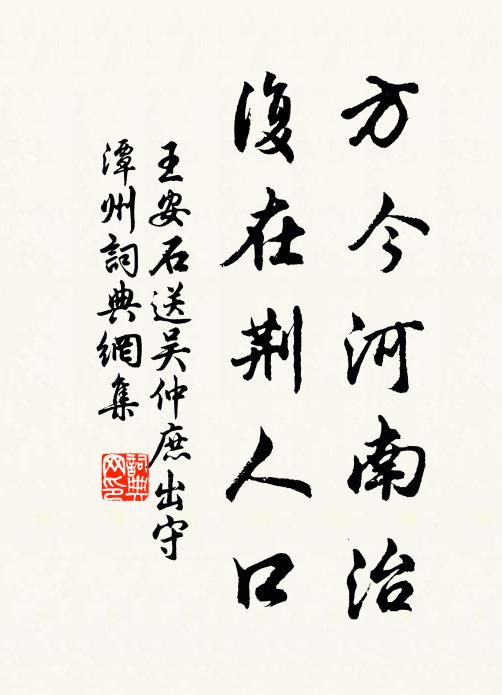 方今河南治
復在荆人口
王安石送吴仲庶出守
潭州詞典網集
詞典
网印